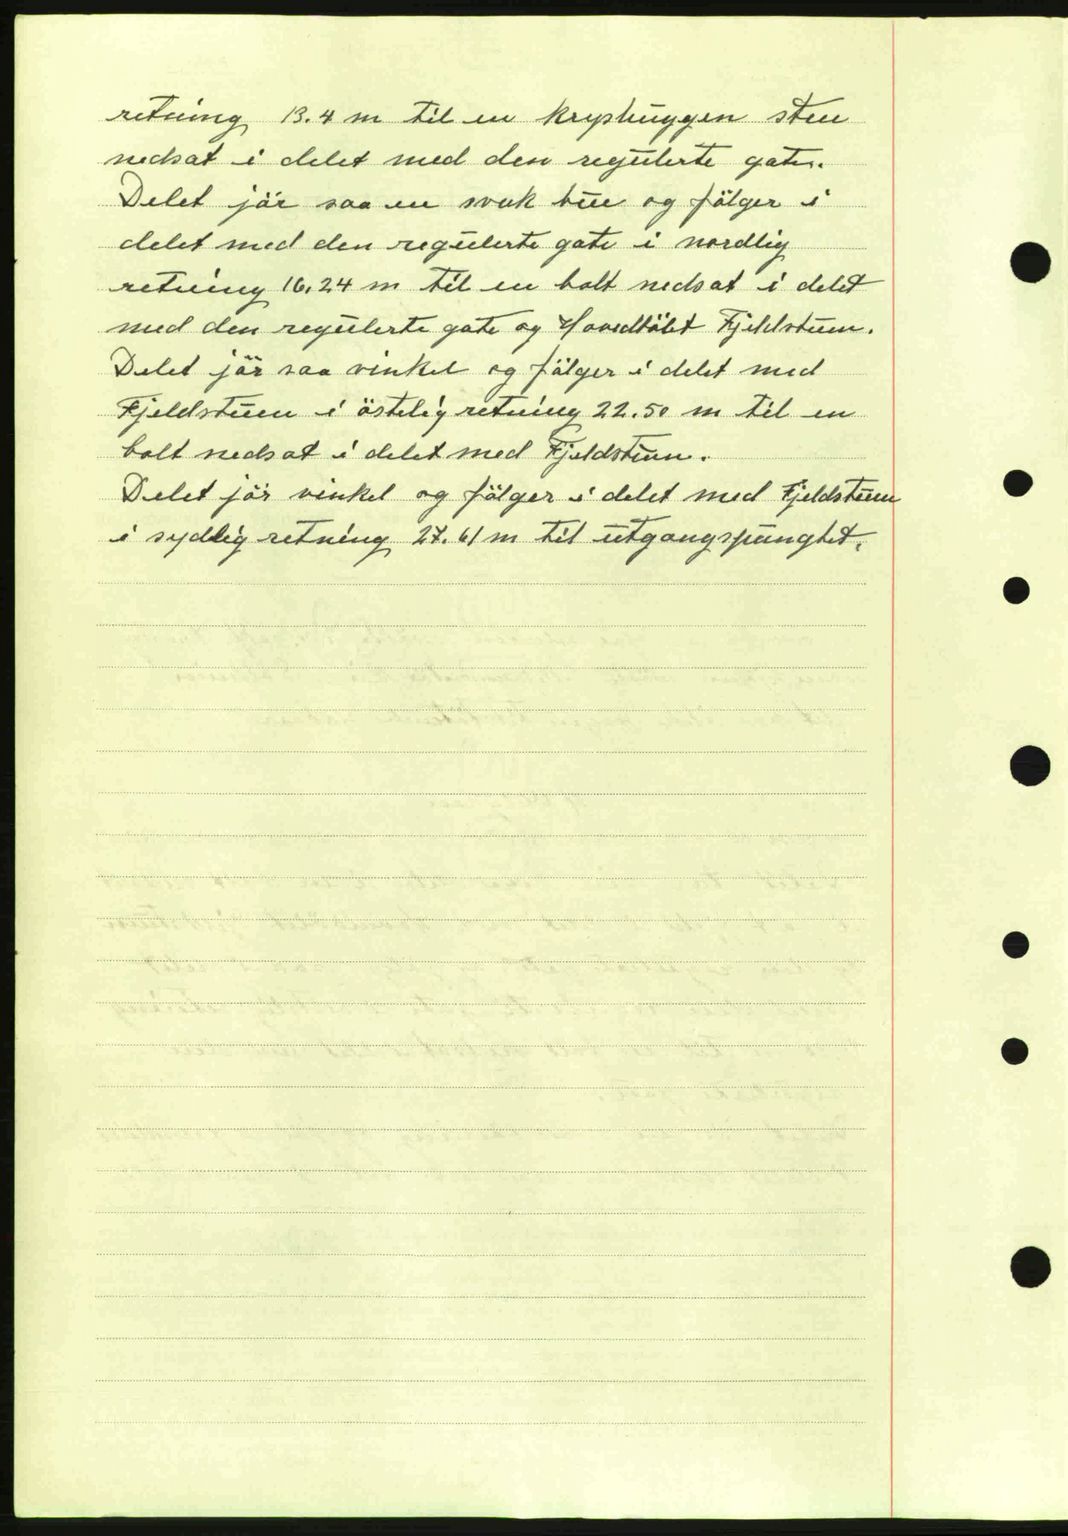 retning 13.4 m til en kryshuggen sten
nedsat i delet med den regulerte gate.
Delet jör saa en svak bue og fölger i
delet med den regulerte gate i nordlig
retning 16.24 m til en bolt nedsat i delet
med den regulerte gate og Hovedbölet Fjeldstuen.
Delet jör saa vinkel og fölger i delet med
Fjeldstuen i östelig retning 22.50 m til en
bolt nedsat i delet med Fjeldstuen.
Delet jör vinkel og fölger i delet med Fjeldstuen
i sydlig retning 27.61 m til utgangspunghtet.